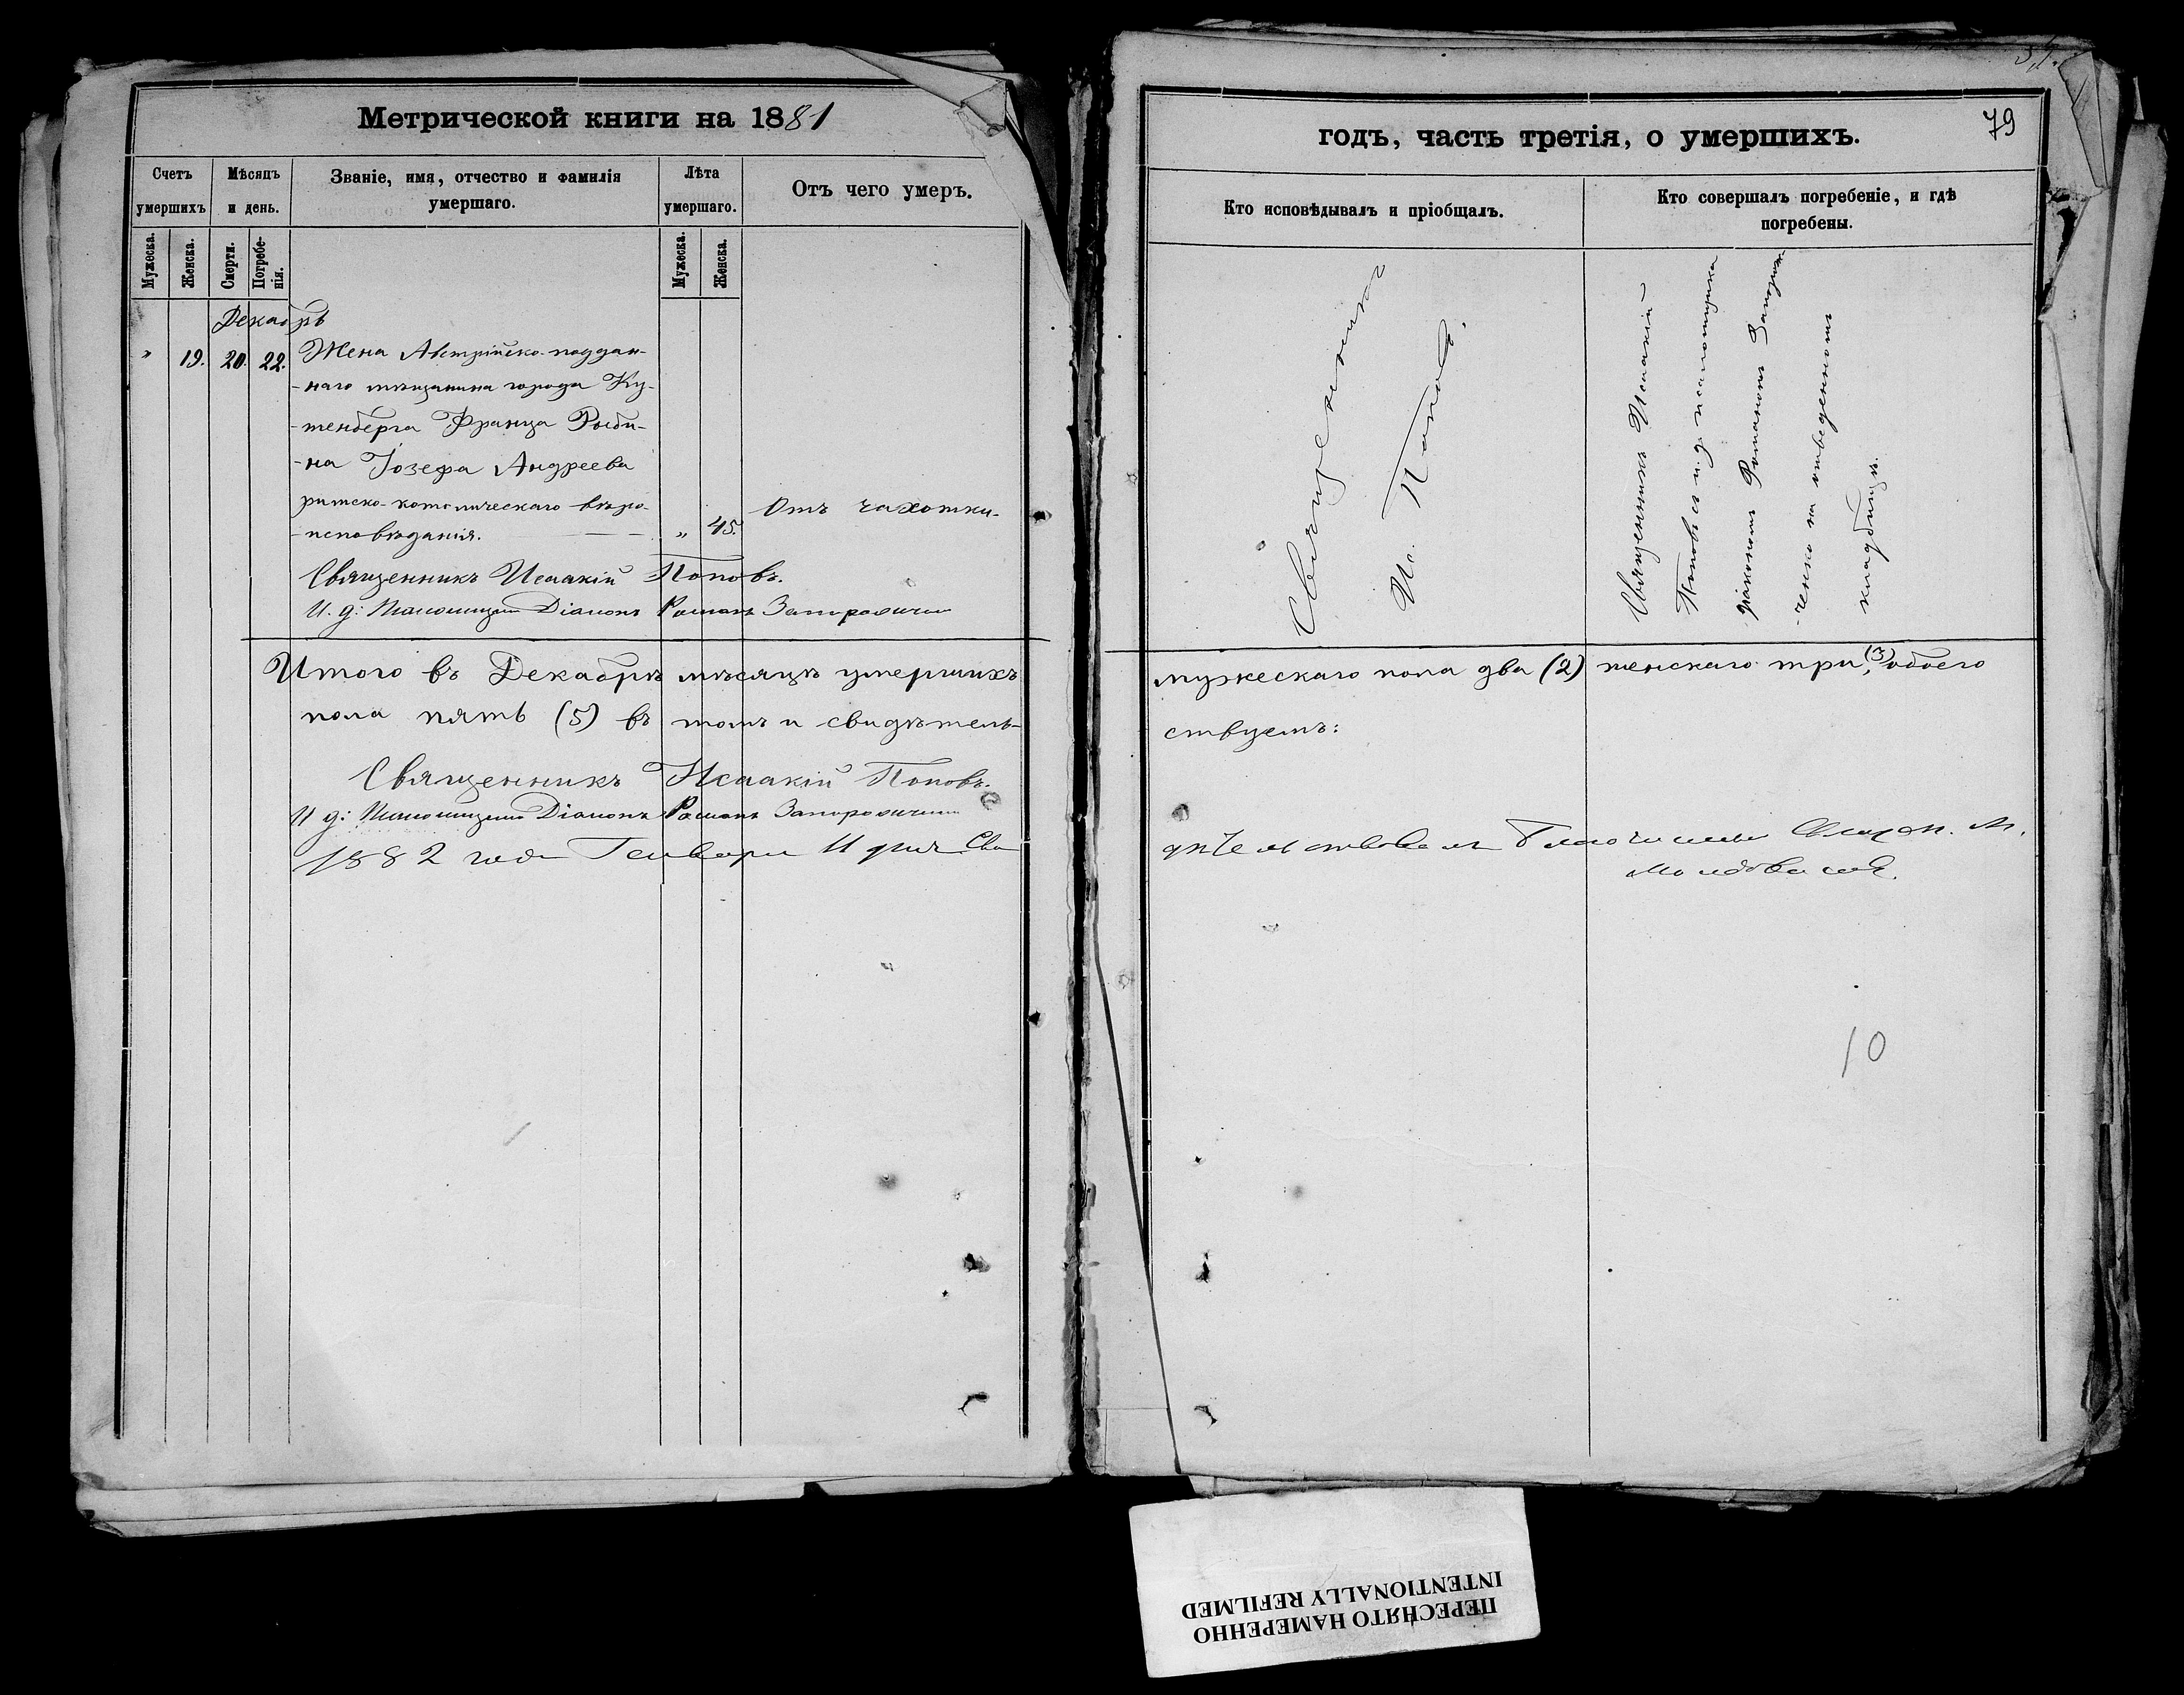 Метрической книги на 1881
Счетъ умершихъ
Мѣсяцъ и день.
Званіе, имя, отчество и фамилія умершаго.
Лѣта умершаго.
Отъ чего умеръ.
Мужеска.
Женска.
Смерти.
Погребенія.
Мужеска.
Женска.
Декабрь
" 19. 20. 22. Жена Австрійско-поддан-
-наго мѣщанина города Ку-
-тенберга Франца Рыби-
-на Іозефа Андреева
римско-католическаго вѣро-
-исповѣданія. " 45. Отъ чахотки.
Священникъ Исаакій Поповъ.
И. д: Псаломщика Діаконъ Романъ
Итого въ Декабрѣ мѣсяцѣ умершихъ
пола пять (5) въ томъ и свидѣтель-
Священникъ Исаакій Поповъ.
И д: Псаломщика Діаконъ Романъ
1882 года Генваря 11 дня Сви
79
годъ, часть третія, о умершихъ.
Кто исповѣдывалъ и пріобщалъ.
Кто совершалъ погребеніе, и гдѣ погребены.
Священникъ
Ис. Поповъ.
Священникъ Исаакій
Поповъ съ и. д. псаломщика
діакономъ Романомъ Запорож
-ченко на отведенномъ
кладбищѣ.
мужескаго пола два (2) женскаго три (3), обоего
ствуемъ:
дѣтельствовалъ Благочинный
10
ПЕРЕСНЯТО НАМЕРЕННО
INTENTIONALLY REFILMED